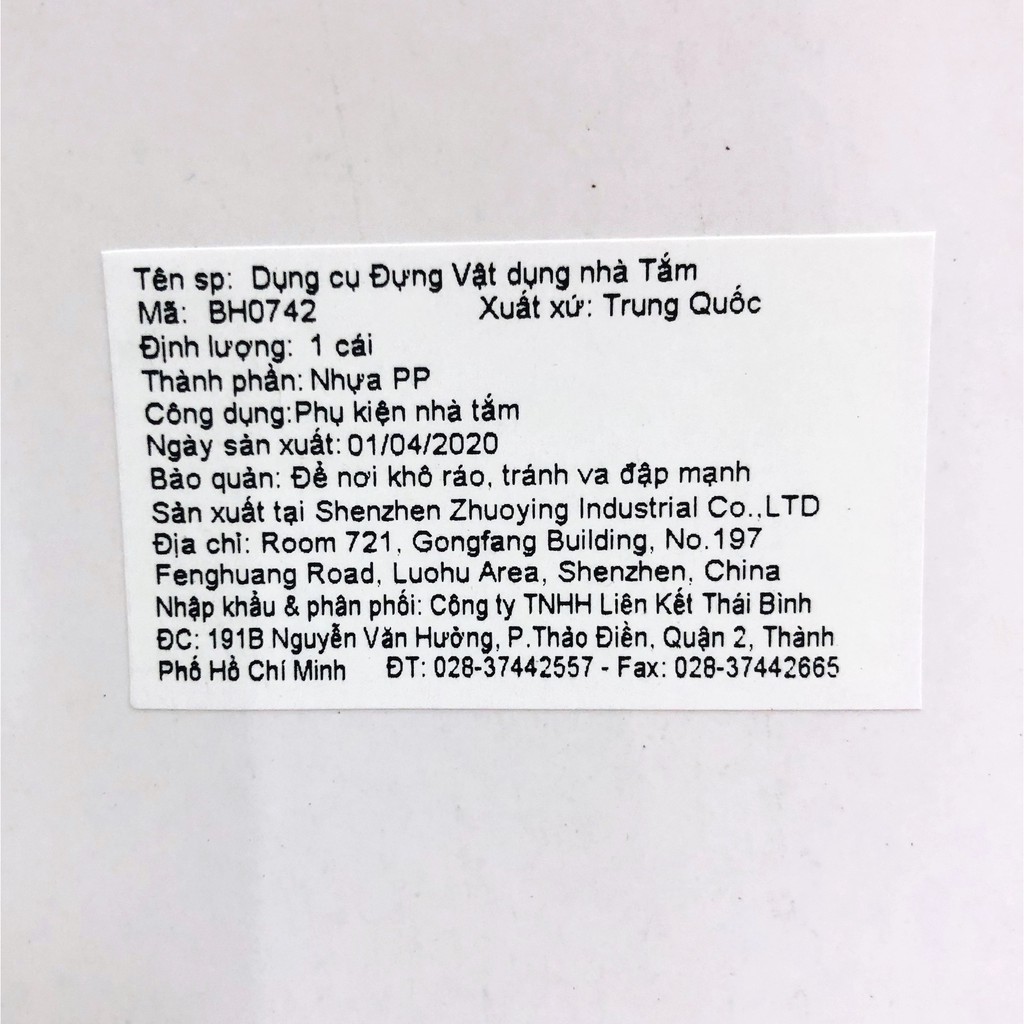 Tên sp: Dụng cụ Đựng Vật dụng nhà Tắm
Mã: BH0742 Xuất xứ: Trung Quốc
Định lượng: 1 cái
Thành phần: Nhựa PP
Công dụng:Phụ kiện nhà tắm
Ngày sản xuất: 01/04/2020
Bảo quản: Để nơi khô ráo, tránh va đập mạnh
Sản xuất tại Shenzhen Zhuoying Industrial Co.,LTD
Địa chỉ: Room 721, Gongfang Building, No.197
Fenghuang Road, Luohu Area, Shenzhen, China
Nhập khẩu & phân phối: Công ty TNHH Liên Kết Thái Bình
ĐC: 191B Nguyễn Văn Hưởng, P.Thảo Điền, Quận 2, Thành
Phố Hồ Chí Minh ĐT: 028-37442557 - Fax: 028-37442665